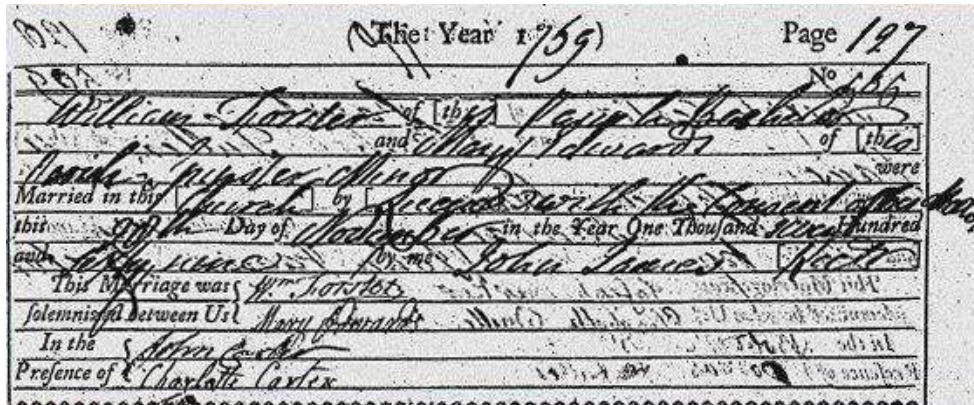 (The Year 1759) Page 197
No
William Forster of [this] Parish Bachelor
and Mary Edwards of [this]
Parish Spinster Minor were
Married in this [Church] by [Licence] with the Consent of
this Day of November in the Year One Thousand Seven Hundred
and fifty nine by me John James Rector
This Marriage was { Wm Forster
solemnized between Us { Mary Edwards
In the { John Carter
Presence of { Charlotte Carter